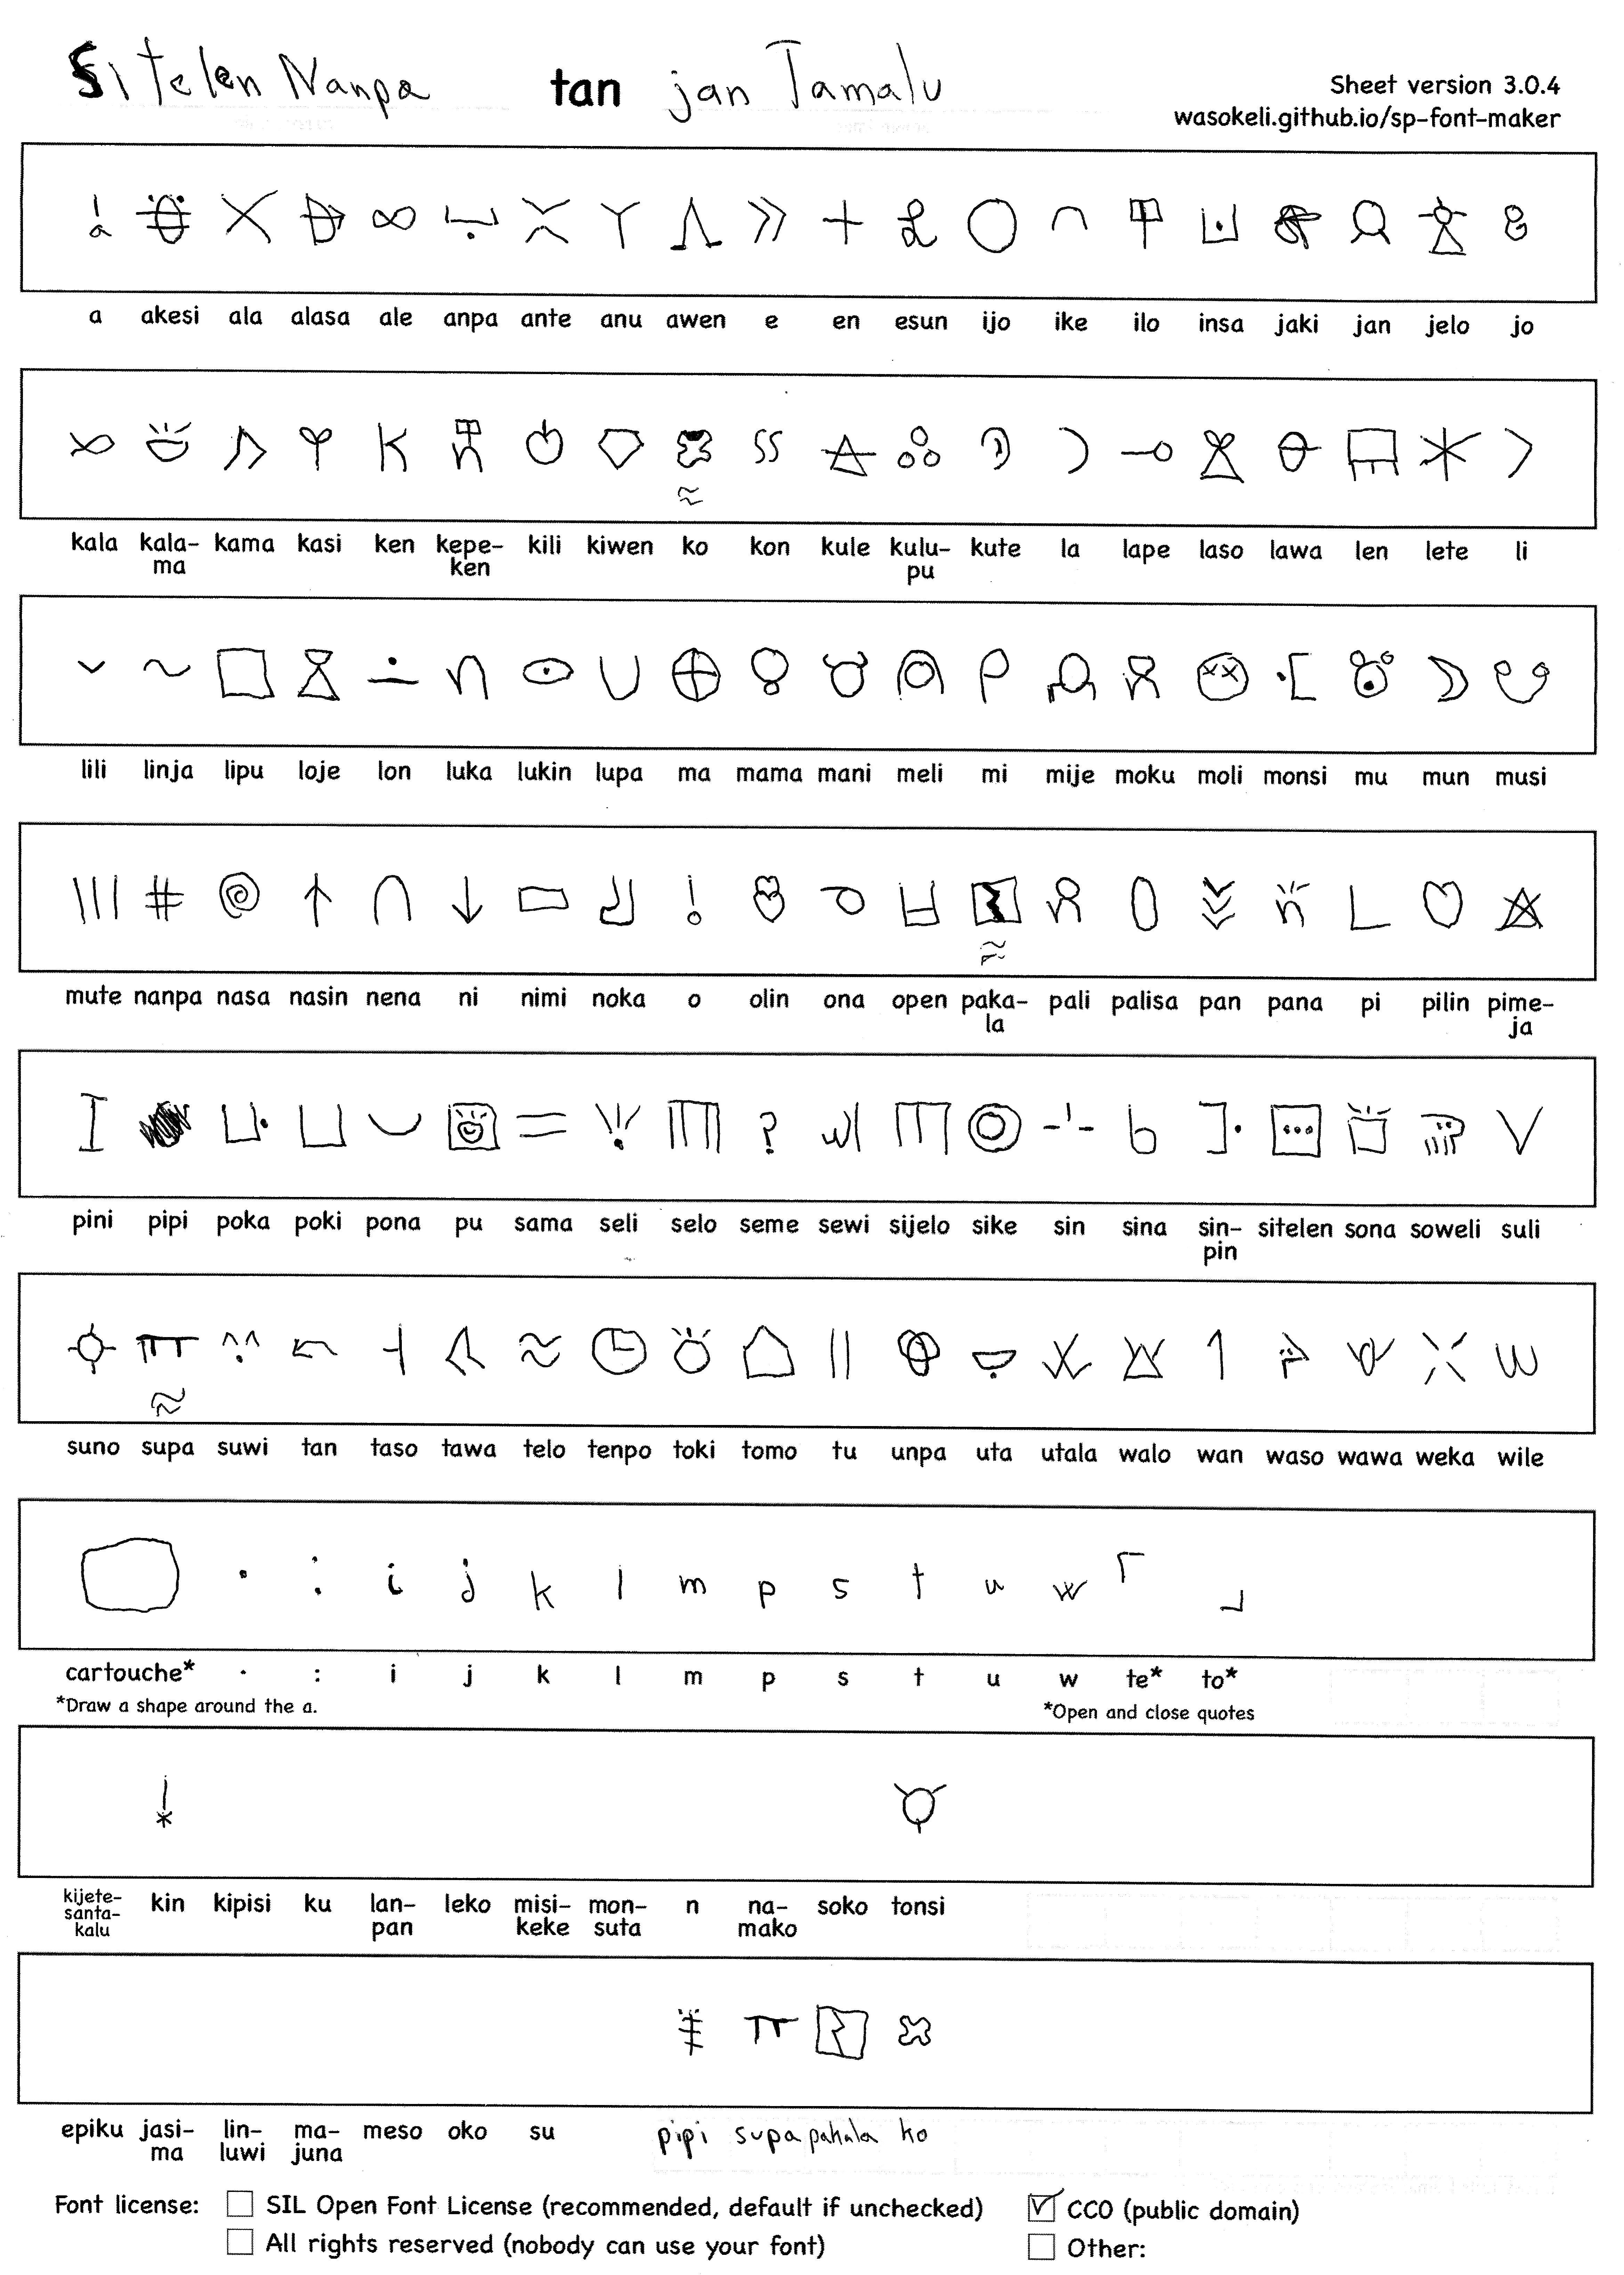 sitelen Nanpa tan jan Tamalu
Sheet version 3.0.4
wasokeli.github.io/sp-font-maker
a akesi ala alasa ale anpa ante anu awen e en esun ijo ike ilo insa jaki jan jelo jo
kala kala- kama kasi ken kepe- kili kiwen ko kon kule kulu- kute la lape laso lawa len lete li
ma ken pu
lili linja lipu loje lon luka lukin lupa ma mama mani meli mi mije moku moli monsi mu mun musi
mute nanpa nasa nasin nena ni nimi noka o olin ona open paka- pali palisa pan pana pi pilin pime-
la ja
pini pipi poka poki pona pu sama seli selo seme sewi sijelo sike sin sina sin- sitelen sona soweli suli
pin
suno supa suwi tan taso tawa telo tenpo toki tomo tu unpa uta utala walo wan waso wawa weka wile
i j k l m p s t u w
cartouche* · : i j k l m p s t u w te* to*
*Draw a shape around the a. *Open and close quotes
kijete- kin kipisi ku lan- leko misi- mon- n na- soko tonsi
santa- pan keke suta mako
kalu
epiku jasi- lin- ma- meso oko su pipi supa pakala ko
ma luwi juna
Font license: SIL Open Font License (recommended, default if unchecked) CC0 (public domain)
All rights reserved (nobody can use your font) Other: